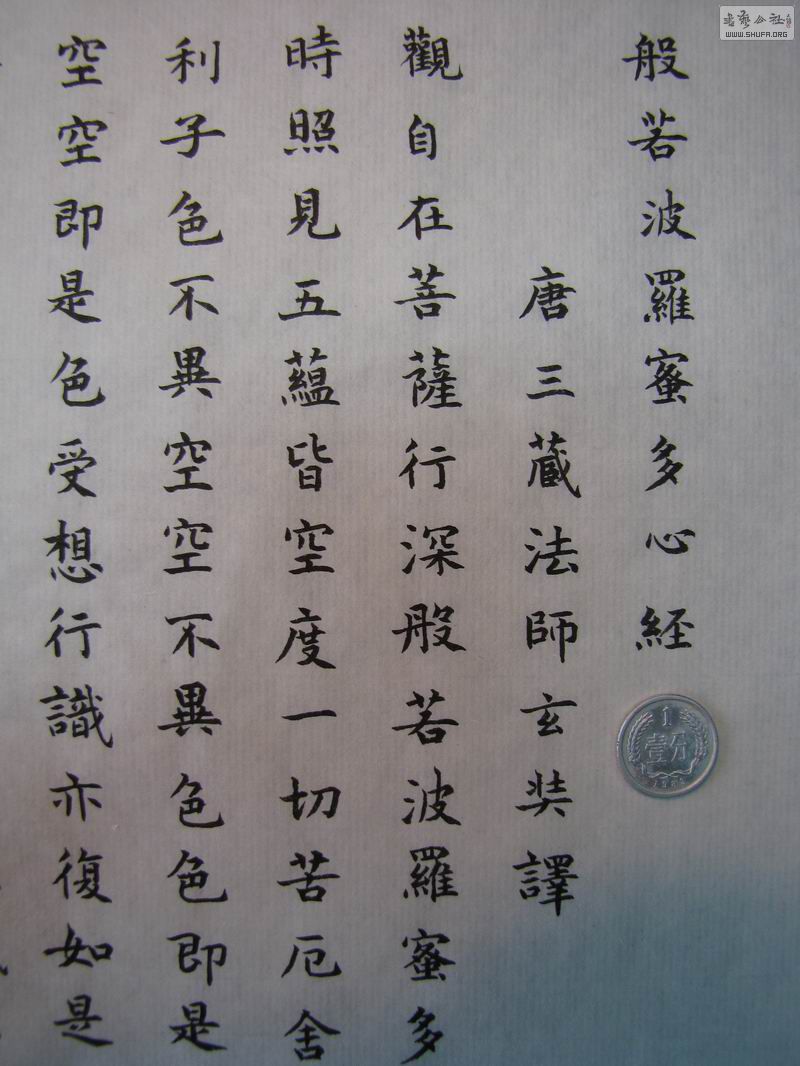 般若波羅蜜多心経
唐三蔵法師玄奘譯
觀自在菩薩行深般若波羅蜜多
時照見五蘊皆空度一切苦厄舍
利子色不異空空不異色色即是
空空即是色受想行識亦復如是
1
壹分
WWW.SHUFA.ORG